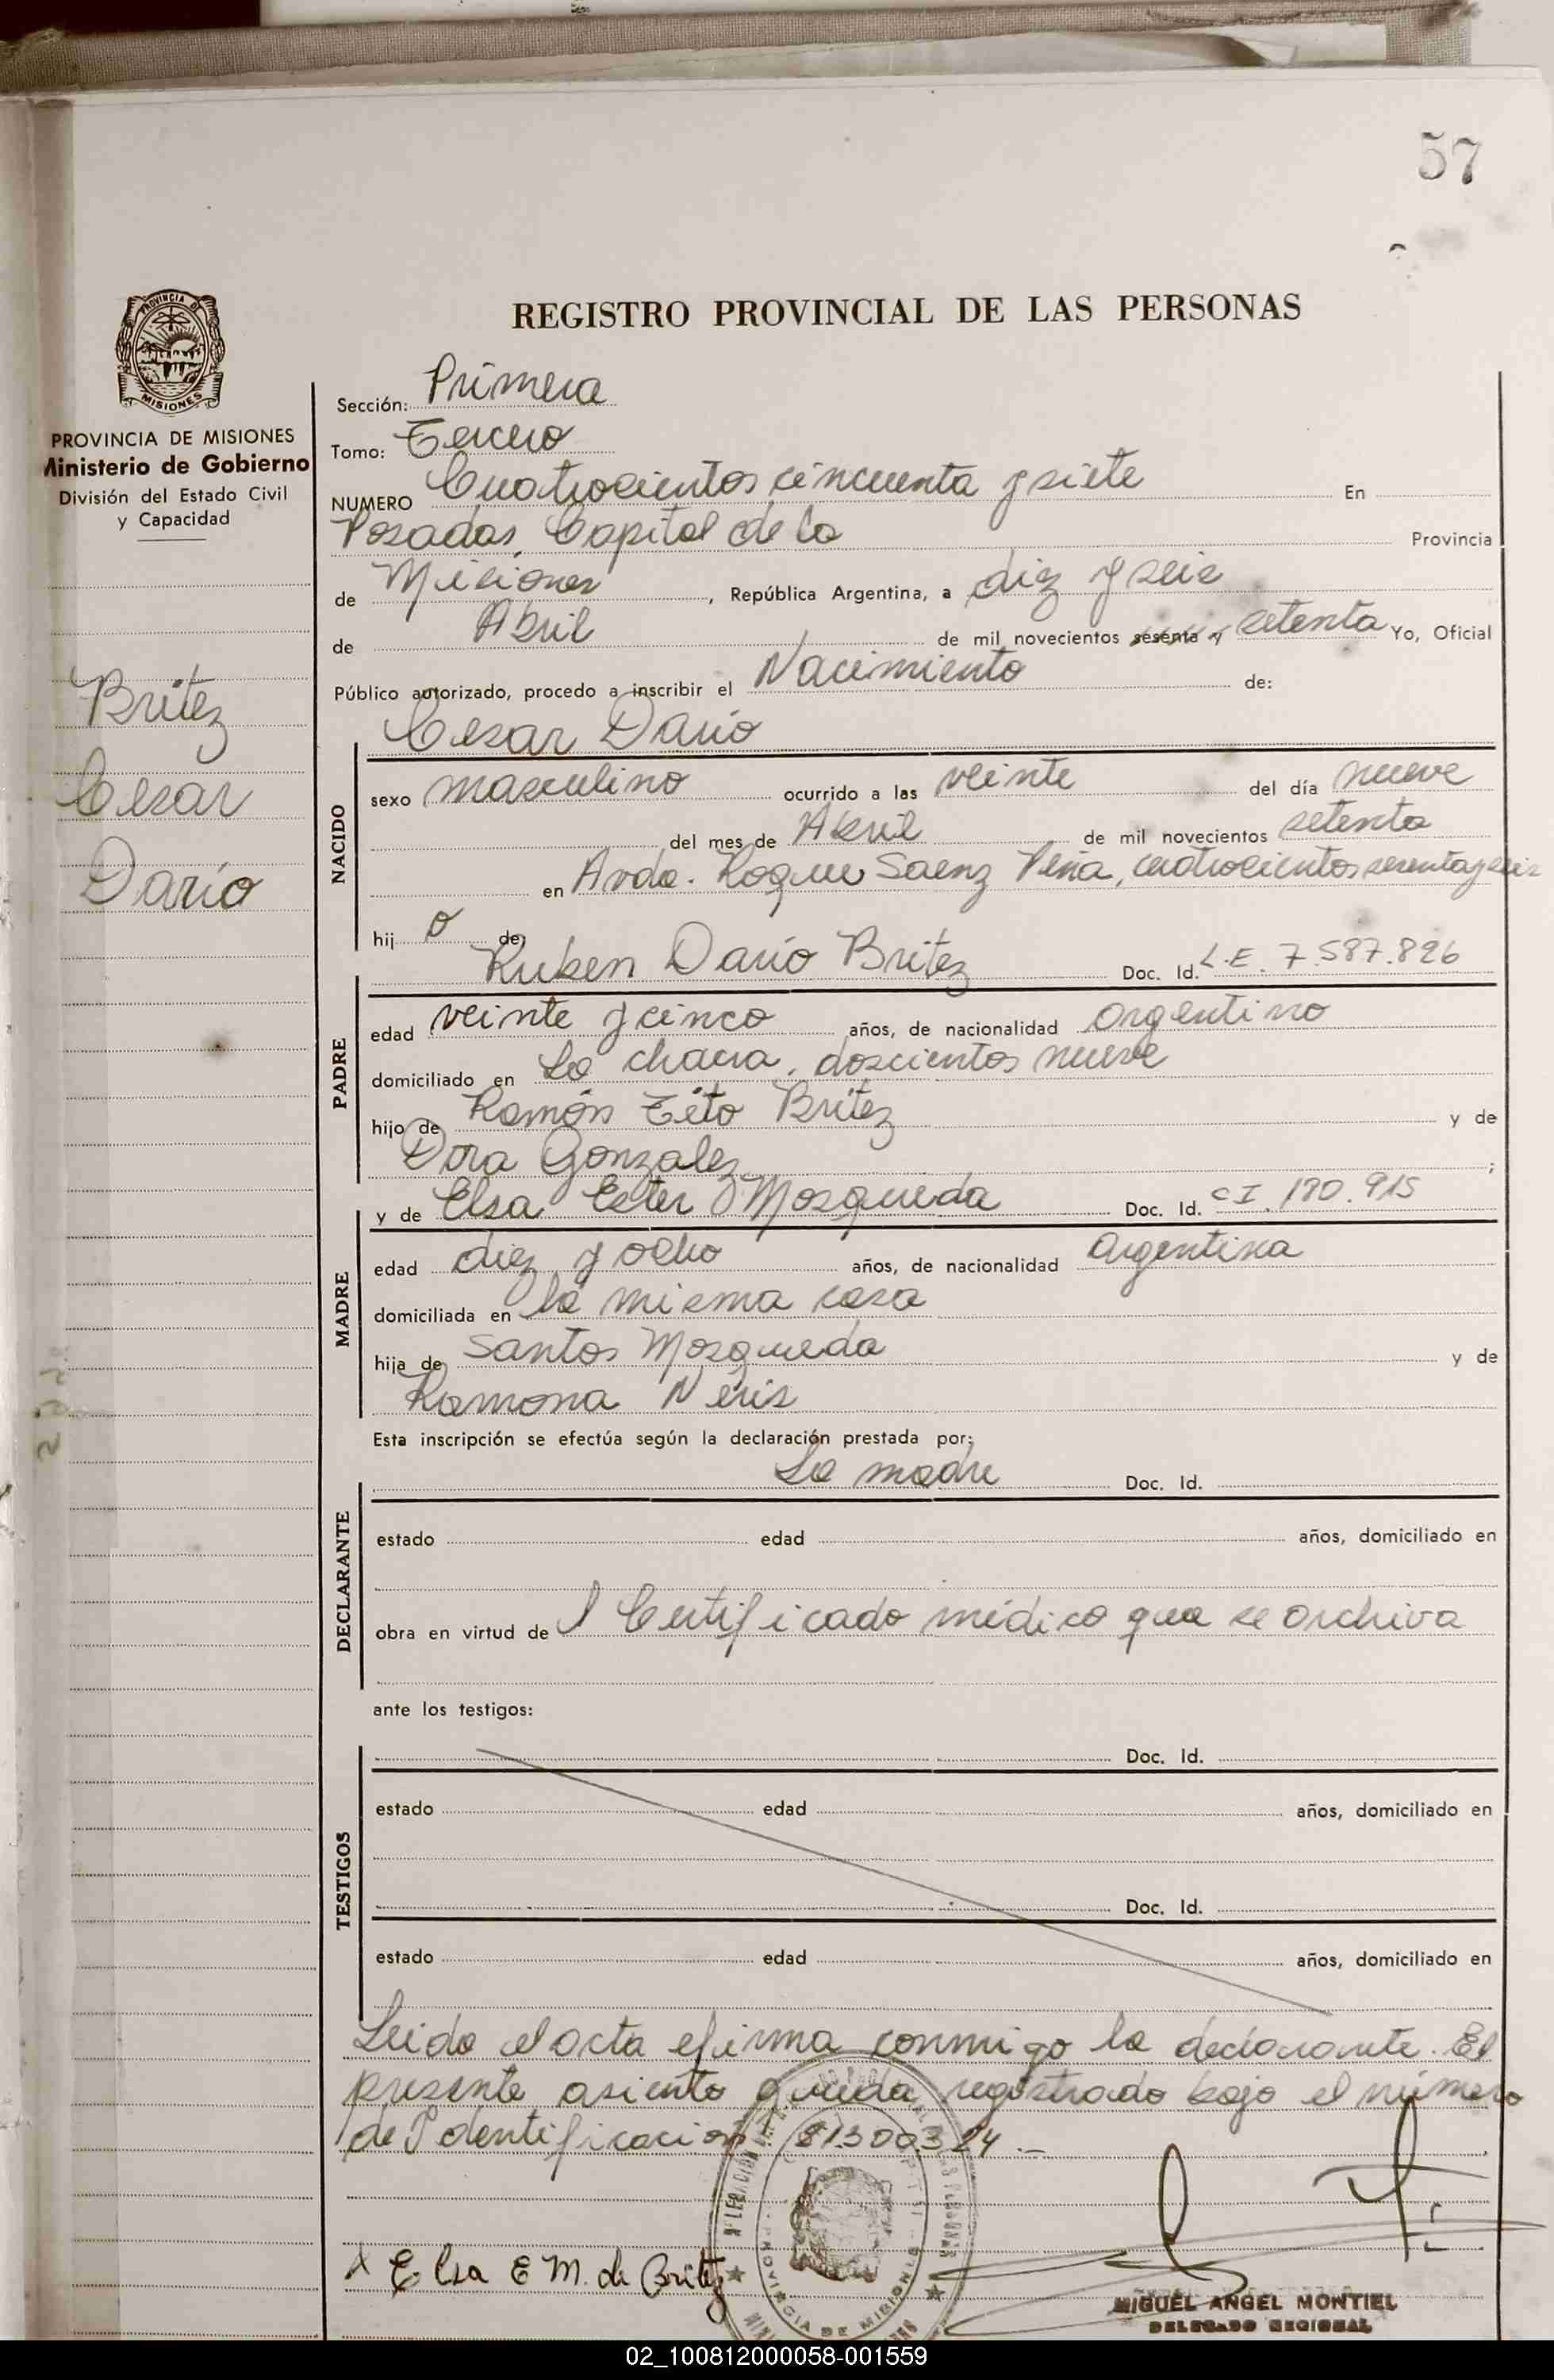 57
REGISTRO PROVINCIAL DE LAS PERSONAS
PROVINCIA DE
MISIONES
PROVINCIA DE MISIONES
Ministerio de Gobierno
División del Estado Civil
y Capacidad
Britez
Cesar
Darío
Sección: Primera
Tomo: Tercero
NUMERO Cuatrocientos cincuenta y siete En
Posadas, Capital de la Provincia
de Misiones, República Argentina, a diez y seis
de Abril de mil novecientos sesenta y setenta Yo, Oficial
Público autorizado, procedo a inscribir el Nacimiento de:
Cesar Darío
NACIDO
sexo masculino ocurrido a las veinte del día nueve
del mes de Abril de mil novecientos setenta
en Avda. Roque Saenz Peña, cuatrocientos sesenta y seis
hijo de
Ruben Darío Britez Doc. Id. L.E. 7.587.826
PADRE
edad veinte y cinco años, de nacionalidad argentino
domiciliado en La chacra, doscientos nueve
hijo de Ramón Tito Britez y de
Dora Gonzalez;
y de Elsa Ester Mosqueda Doc. Id. CI. 170.915
MADRE
edad diez y ocho años, de nacionalidad argentina
domiciliada en la misma casa
hija de Santos Mosqueda y de
Ramona Neris
Esta inscripción se efectúa según la declaración prestada por:
La madre Doc. Id.
DECLARANTE
estado edad años, domiciliado en
obra en virtud de l Certificado médico que se archiva
ante los testigos:
Doc. Id.
TESTIGOS
estado edad años, domiciliado en
Doc. Id.
estado edad años, domiciliado en
Leida el acta e firma conmigo la declarante. El
presente asiento queda registrado bajo el número
de Identificación
PROVINCIA DE MISIONES
Elsa E M. de Britez
MIGUEL ANGEL MONTIEL
DELEGADO REGIONAL
02_100812000058-001559